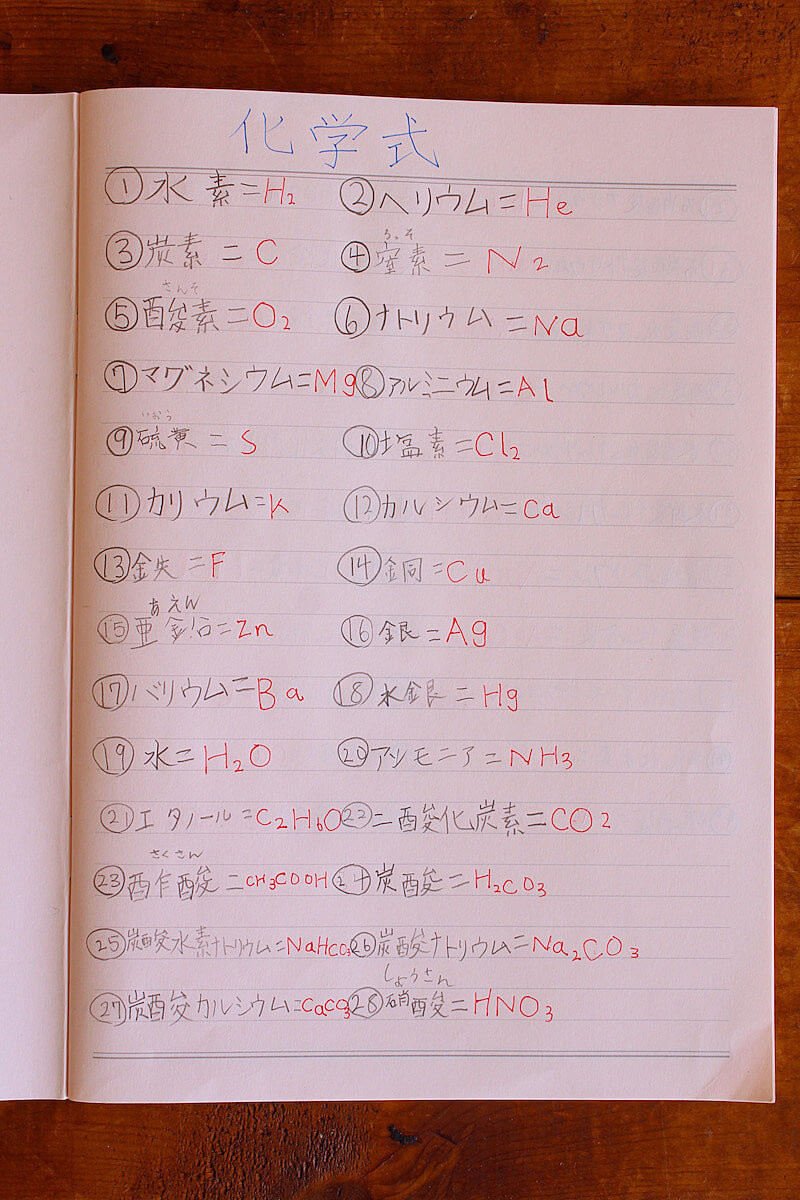 化学式
①水素=H₂ ②ヘリウム=He
③炭素=C ④窒素=N₂
さんそ
⑤酸素=O₂ ⑥ナトリウム=Na
⑦マグネシウム=Mg ⑧アルミニウム=Al
いおう
⑨硫黄=S ⑩塩素=Cl₂
⑪カリウム=K ⑫カルシウム=Ca
⑬鉄=F ⑭銅=Cu
あえん
⑮亜鉛=Zn ⑯銀=Ag
⑰バリウム=Ba ⑱水銀=Hg
⑲水=H₂O ⑳アンモニア=NH₃
㉑エタノール=C₂H₆O ㉒二酸化炭素=CO₂
さくさん
㉓酢酸=CH₃COOH ㉔炭酸=H₂CO₃
㉕炭酸水素ナトリウム=NaHCO₃ ㉖炭酸ナトリウム=Na₂CO₃
しょうさん
㉗炭酸カルシウム=CaCO₃ ㉘硝酸=HNO₃